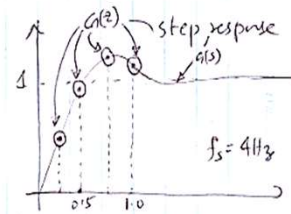 G(z) step response
G(s)
1
fs = 4Hz
0.5 1.0